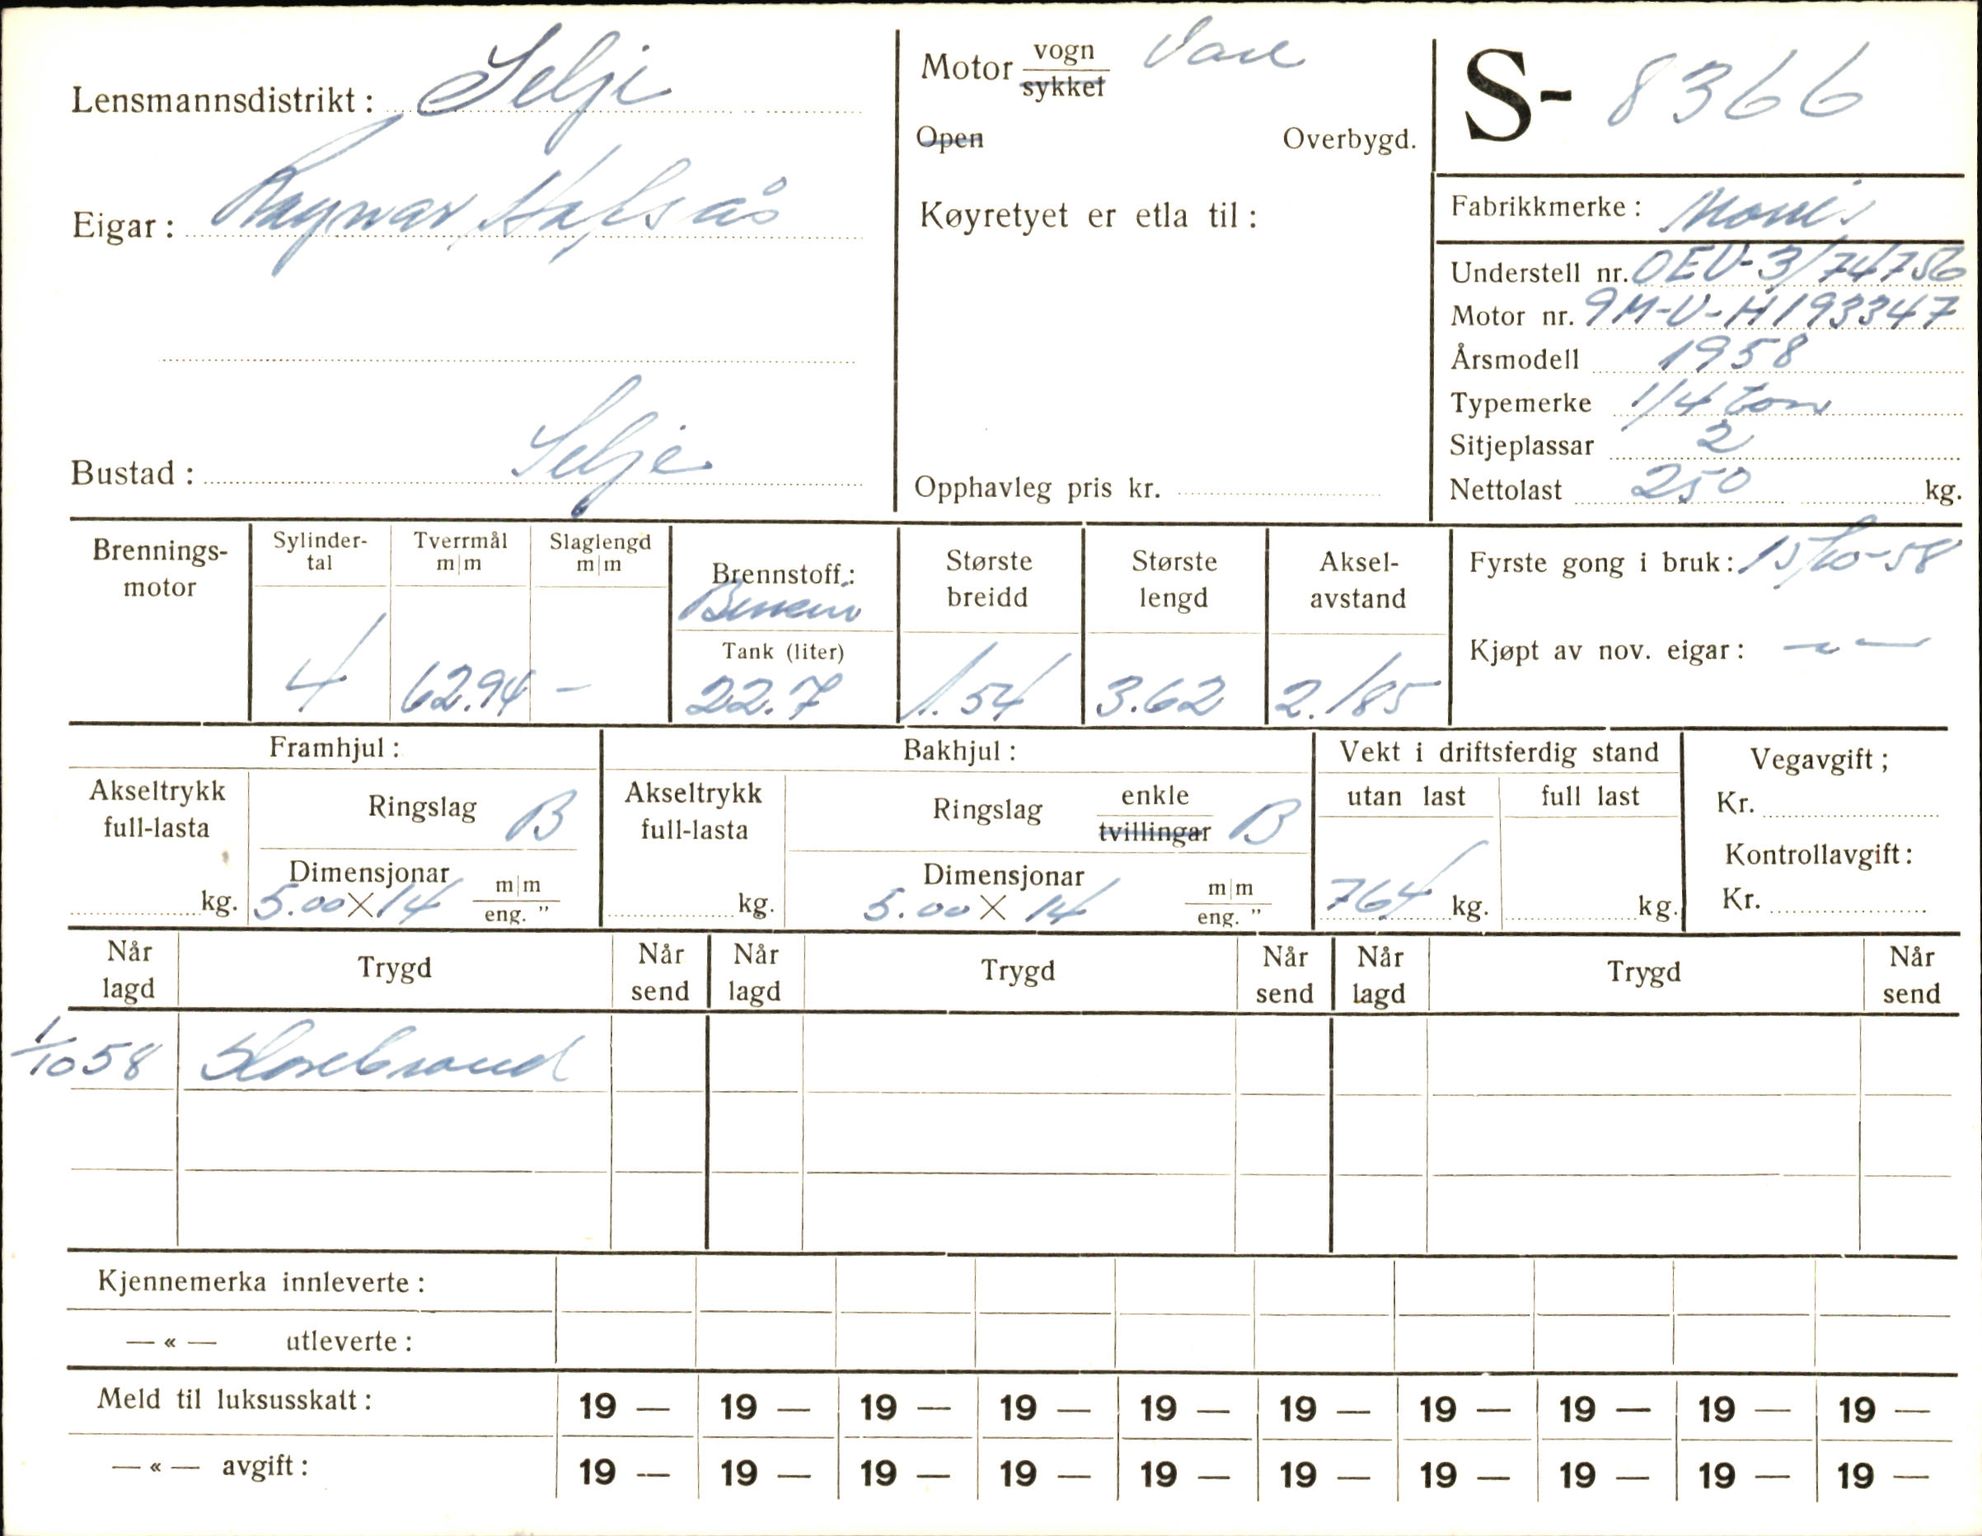 Lensmannsdistrikt: Selje
Eigar: Ragnar Hafsås
Bustad: Selje
Motor vogn Vare
sykkel
Open Overbygd.
Køyretyet er etla til:
Opphavleg pris kr.
S- 8366
Fabrikkmerke: Morris
Understell nr. OEV-3/74756
Motor nr. 9M-U-H193347
Årsmodell 1958
Typemerke 1/4 tonn
Sitjeplassar 2
Nettolast 250 kg.
Brennings-
motor
Sylinder-
tal
4
Tverrmål
m|m
62.94
Slaglengd
m|m
-
Brennstoff:
Bensin
Tank (liter)
22.7
Største
breidd
1.54
Største
lengd
3.62
Aksel-
avstand
2.185
Fyrste gong i bruk: 15/10-58
Kjøpt av nov. eigar: — " —
Framhjul:
Akseltrykk
full-lasta
kg.
Ringslag B
Dimensjonar
5.00 X 14 m|m
eng. "
Bakhjul:
Akseltrykk
full-lasta
kg.
Ringslag enkle
tvillingar B
Dimensjonar
5.00 X 14 m|m
eng. "
Vekt i driftsferdig stand
utan last full last
764 kg. kg.
Vegavgift;
Kr.
Kontrollavgift:
Kr.
Når
lagd Trygd Når
send Når
lagd Trygd Når
send Når
lagd Trygd Når
send
1/10 58 Storebrand
Kjennemerka innleverte:
— « — utleverte:
Meld til luksusskatt: 19 — 19 — 19 — 19 — 19 — 19 — 19 — 19 — 19 — 19 —
— « — avgift: 19 — 19 — 19 — 19 — 19 — 19 — 19 — 19 — 19 — 19 —